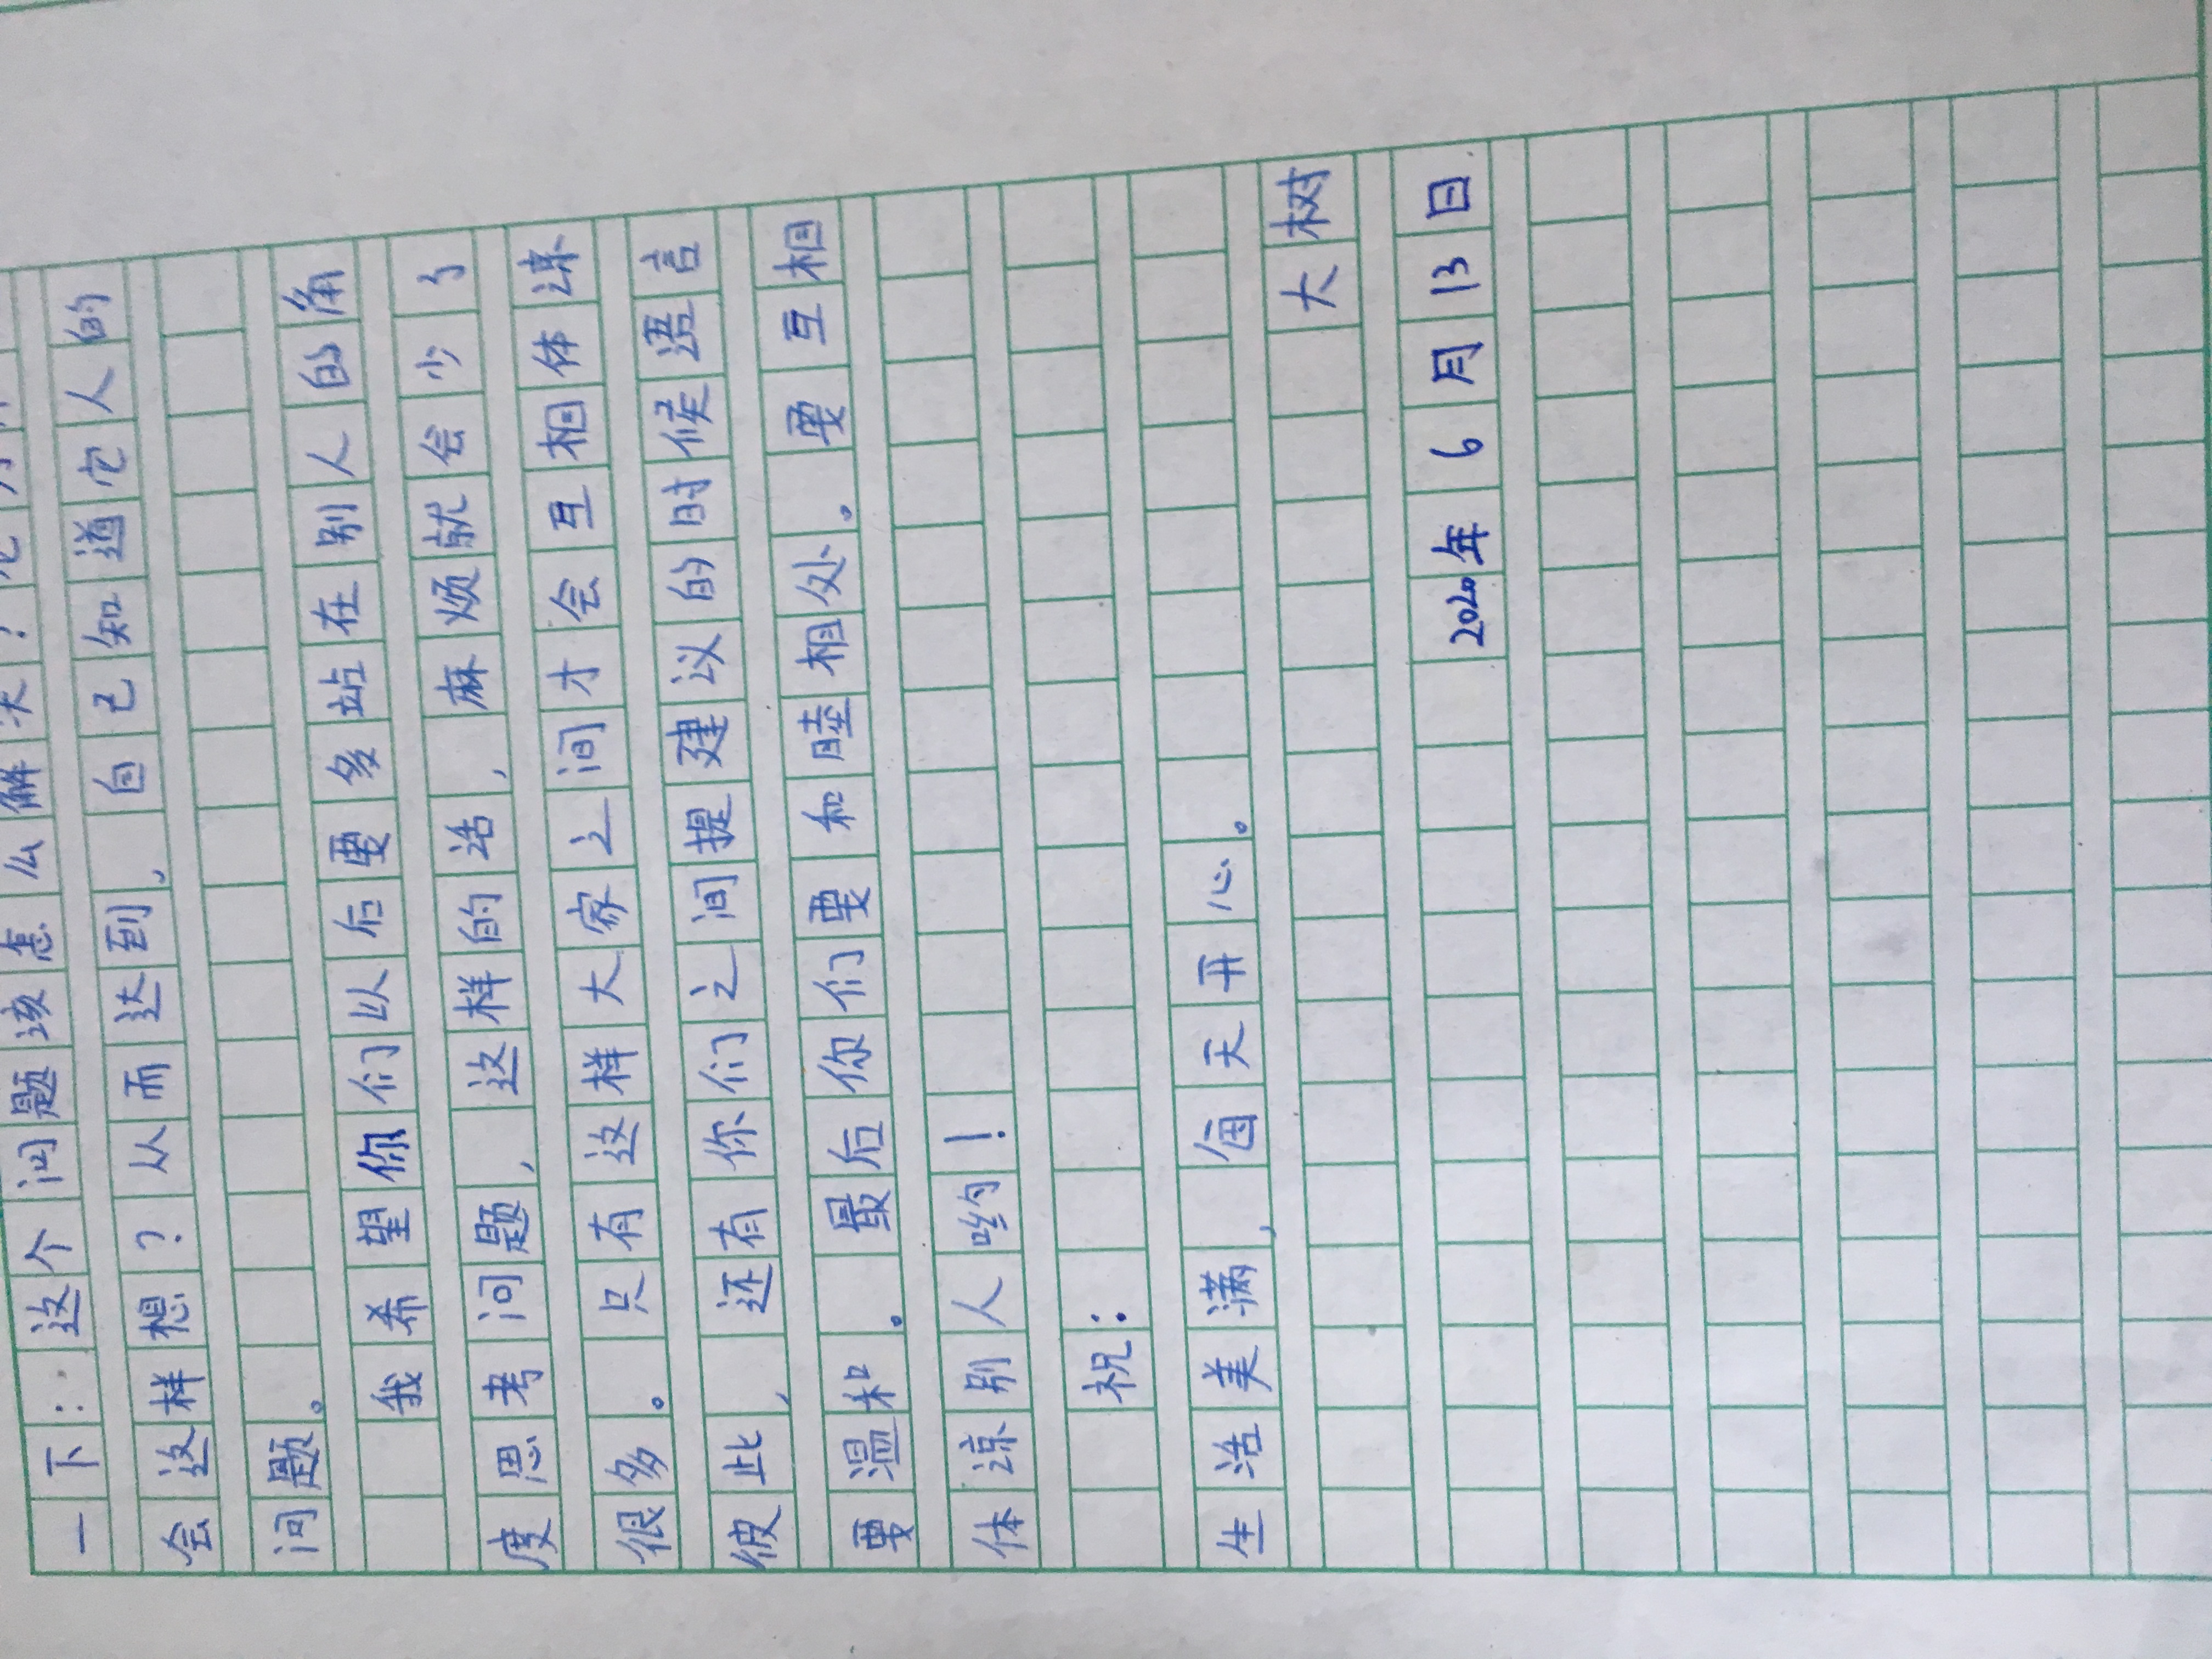 一下：这个问题该怎么解决？它为
会这样想？从而达到，自己知道它人的
问题。
我希望你们以后要多站在别人的角
度思考问题，这样的话，麻烦就会少了
很多。只有这样大家之间才会互相体谅
彼此，还有你们之间提建议的时候语言
要温和。最后你们要和睦相处。要互相
体谅别人哟！
祝：
生活美满，每天开心。
大树
2020年6月13日